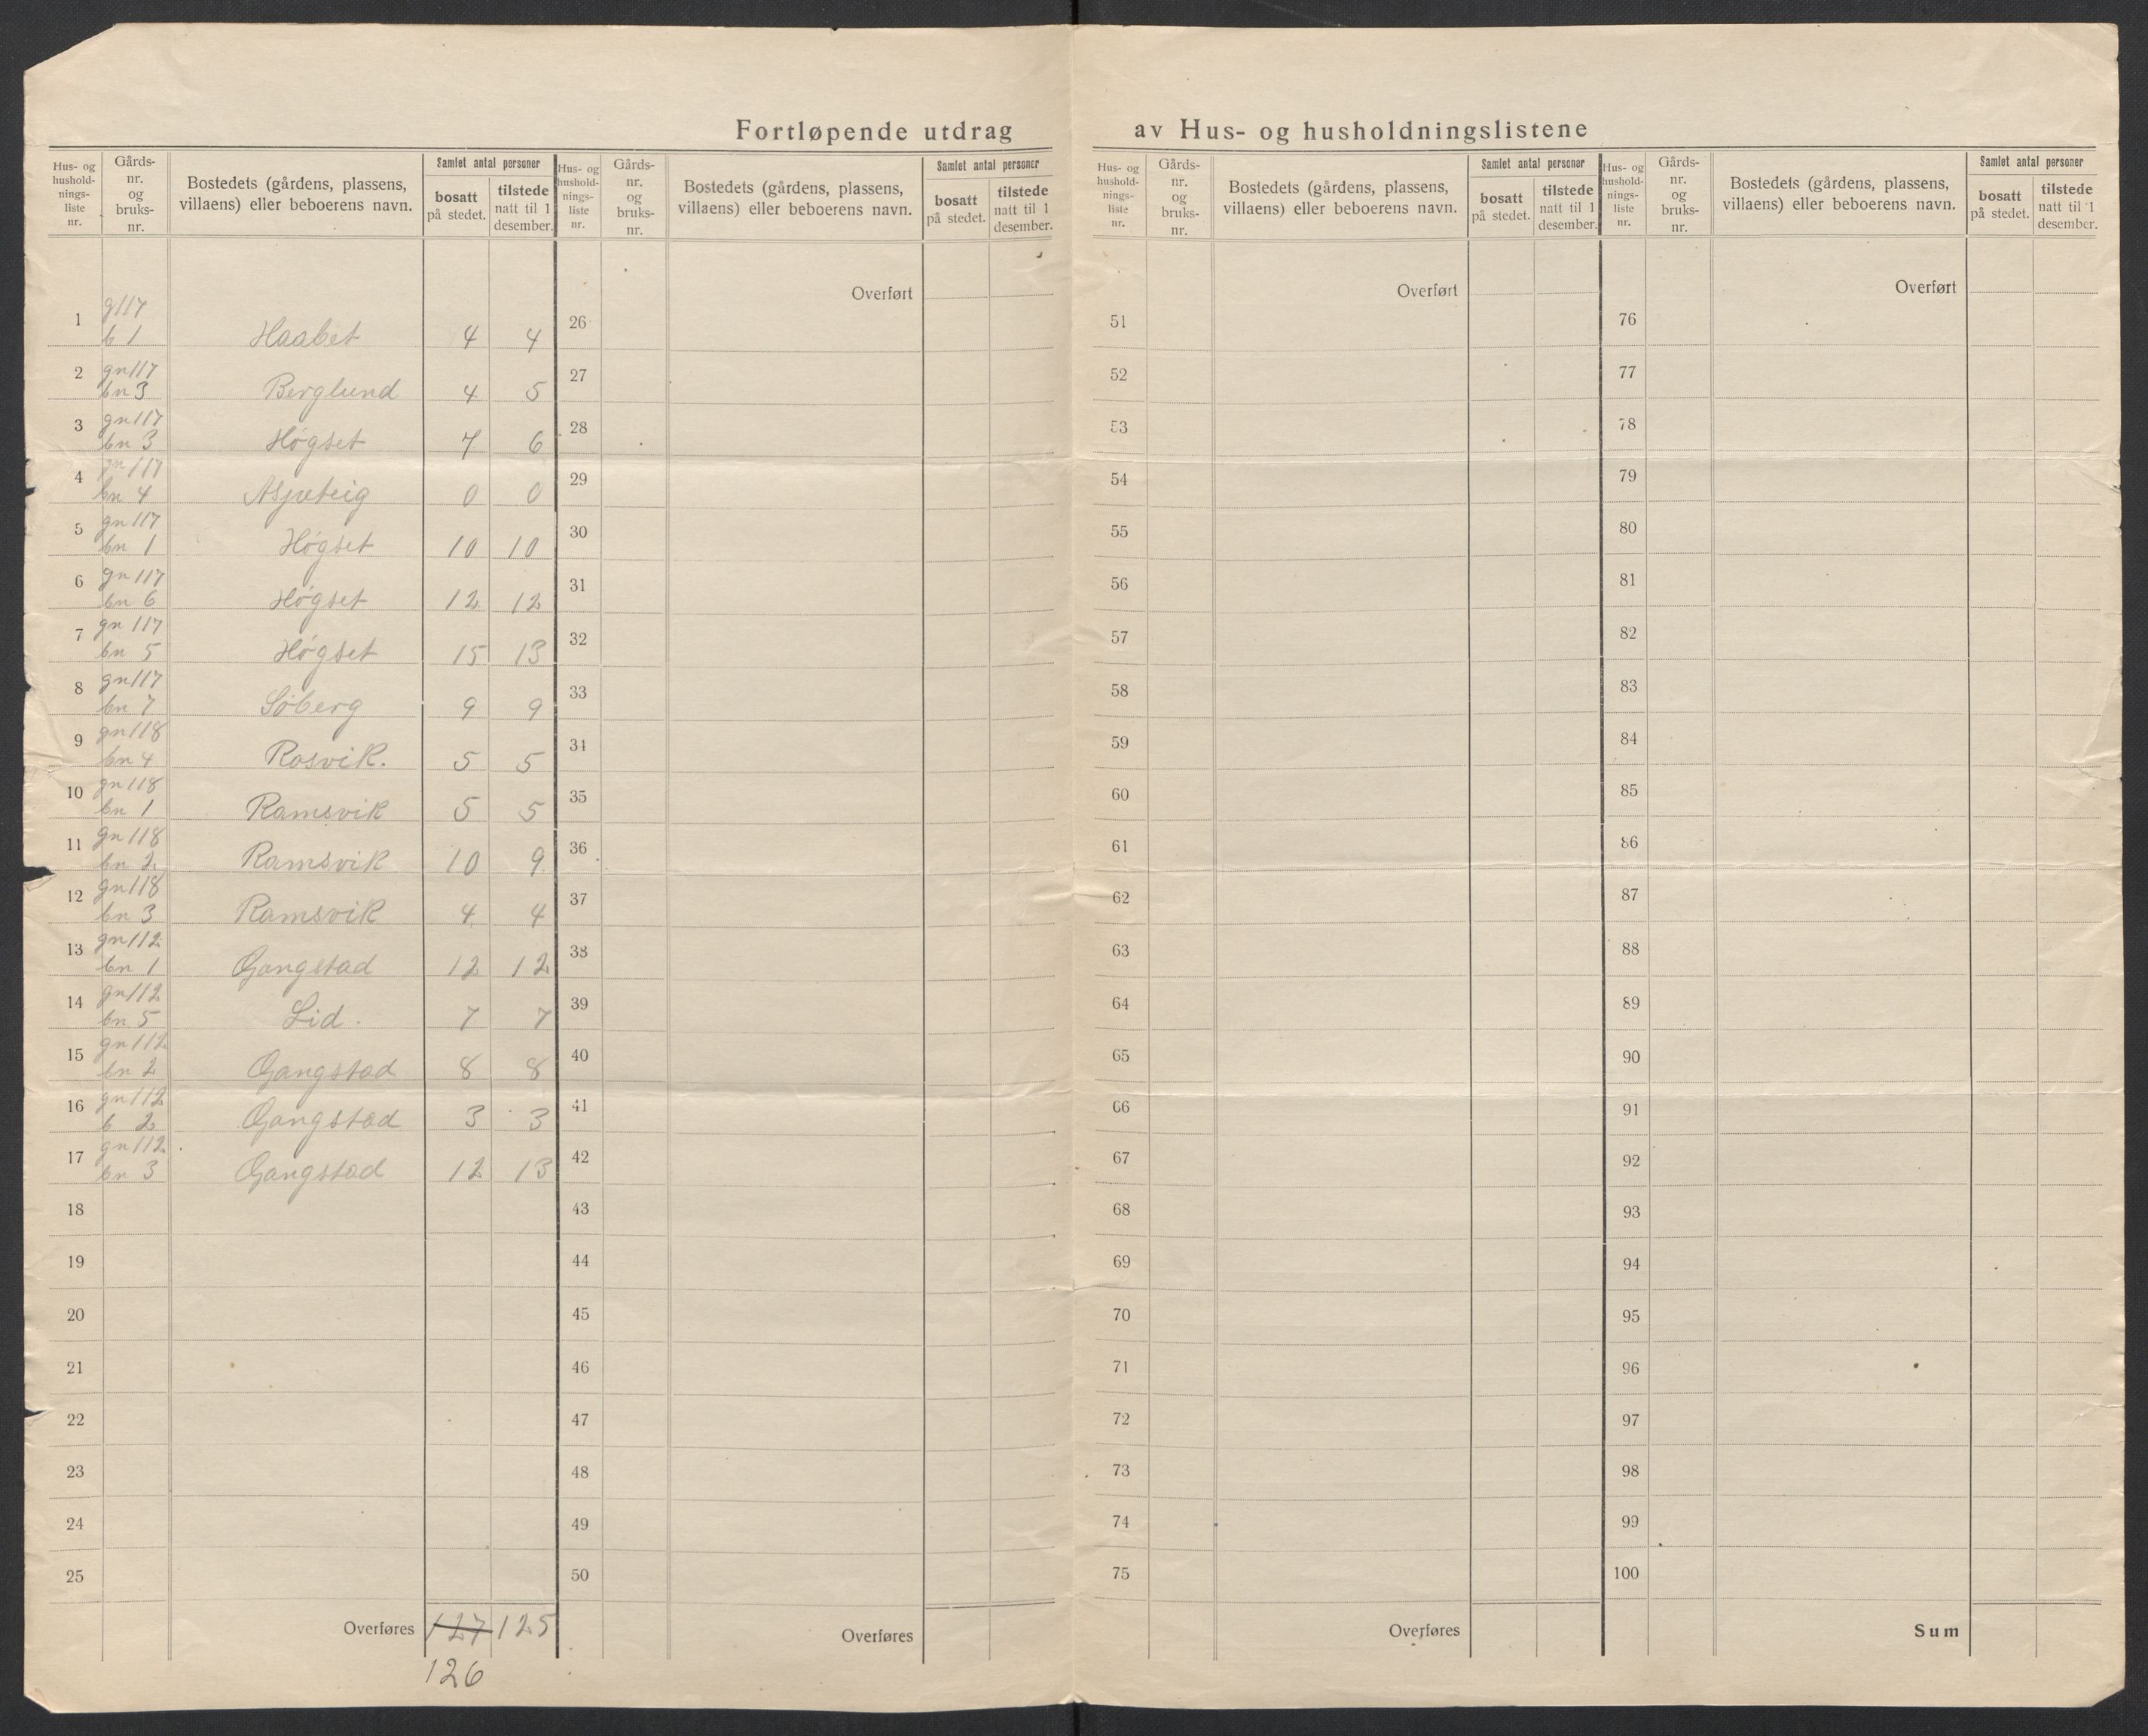 Fortløpende utdrag av Hus- og husholdningslistene
Hus- og hushold-nings-liste nr. Gårds-nr. og bruks-nr. Bostedets (gårdens, plassens, villaens) eller beboerens navn. Samlet antal personer bosatt på stedet. tilstede natt til 1 desember.
1 g 117 b 1 Haabet 4 4
2 gn 117 bn 3 Berglund 4 5
3 gn 117 bn 3 Høgset 7 6
4 gn 117 bn 4 Aspeteig 0 0
5 gn 117 bn 1 Høgset 10 10
6 gn 117 bn 6 Høgset 12 12
7 gn 117 bn 5 Høgset 15 13
8 gn 117 bn 7 Søberg 9 9
9 gn 118 bn 4 Rosvik. 5 5
10 gn 118 bn 1 Ramsvik 5 5
11 gn 118 bn 2 Ramsvik 10 9
12 gn 118 bn 3 Ramsvik 4 4
13 gn 112 bn 1 Gangstad 12 12
14 gn 112 bn 5 Lid. 7 7
15 gn 112 bn 2 Gangstad 8 8
16 gn 112 b 2 Gangstad 3 3
17 gn 112 bn 3 Gangstad 12 13
18
19
20
21
22
23
24
25
Overføres 127 125
126
Hus- og hushold-nings-liste nr. Gårds-nr. og bruks-nr. Bostedets (gårdens, plassens, villaens) eller beboerens navn. Samlet antal personer bosatt på stedet. tilstede natt til 1 desember.
Overført
26
27
28
29
30
31
32
33
34
35
36
37
38
39
40
41
42
43
44
45
46
47
48
49
50
Overføres
Hus- og hushold-nings-liste nr. Gårds-nr. og bruks-nr. Bostedets (gårdens, plassens, villaens) eller beboerens navn. Samlet antal personer bosatt på stedet. tilstede natt til 1 desember.
Overført
51
52
53
54
55
56
57
58
59
60
61
62
63
64
65
66
67
68
69
70
71
72
73
74
75
Overføres
Hus- og hushold-nings-liste nr. Gårds-nr. og bruks-nr. Bostedets (gårdens, plassens, villaens) eller beboerens navn. Samlet antal personer bosatt på stedet. tilstede natt til 1 desember.
Overført
76
77
78
79
80
81
82
83
84
85
86
87
88
89
90
91
92
93
94
95
96
97
98
99
100
Sum